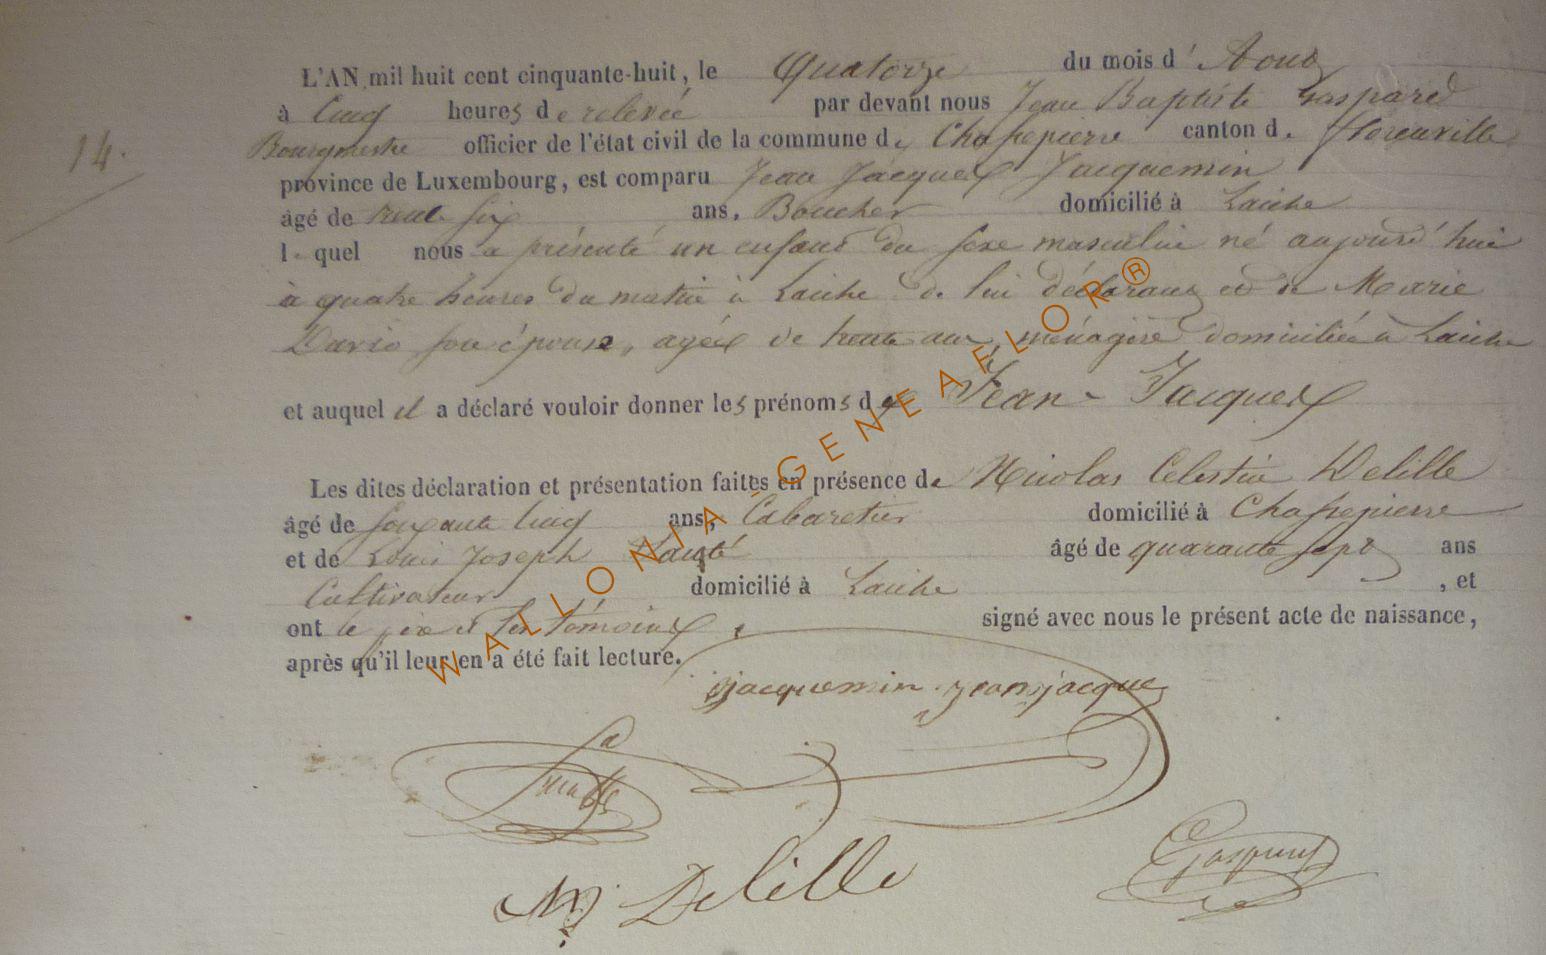 L'AN mil huit cent cinquante-huit, le Quatorze du mois d'Aout
à Cinq heures de relevée par devant nous Jean Baptiste Gaspard
14.
Bourgmestre officier de l'état civil de la commune de Chassepierre canton d. florenville
province de Luxembourg, est comparu Jean Jacques Jacquemin
âgé de trente six ans, Boucher domicilié à Laiche
l. quel nous a présenté un enfant du sexe masculin né aujourd'hui
à quatre heures du matin à Laiche de lui déclarant et de Marie
son épouse, agée de trente ans, ménagère domiciliée à Laiche
et auquel il a déclaré vouloir donner les prénoms de Jean-Jacques
Les dites déclaration et présentation faites en présence de Nicolas Celestin Delille
âgé de soixante Cinq ans, Cabaretier domicilié à Chassepierre
et de Louis Joseph âgé de quarante sept ans
Cultivateur domicilié à Laiche , et
ont le père et les témoins signé avec nous le présent acte de naissance,
après qu'il leur en a été fait lecture.
jacquemin jean jacque
Delille
Gaspard
WALLONIA-GENEAFLOR®